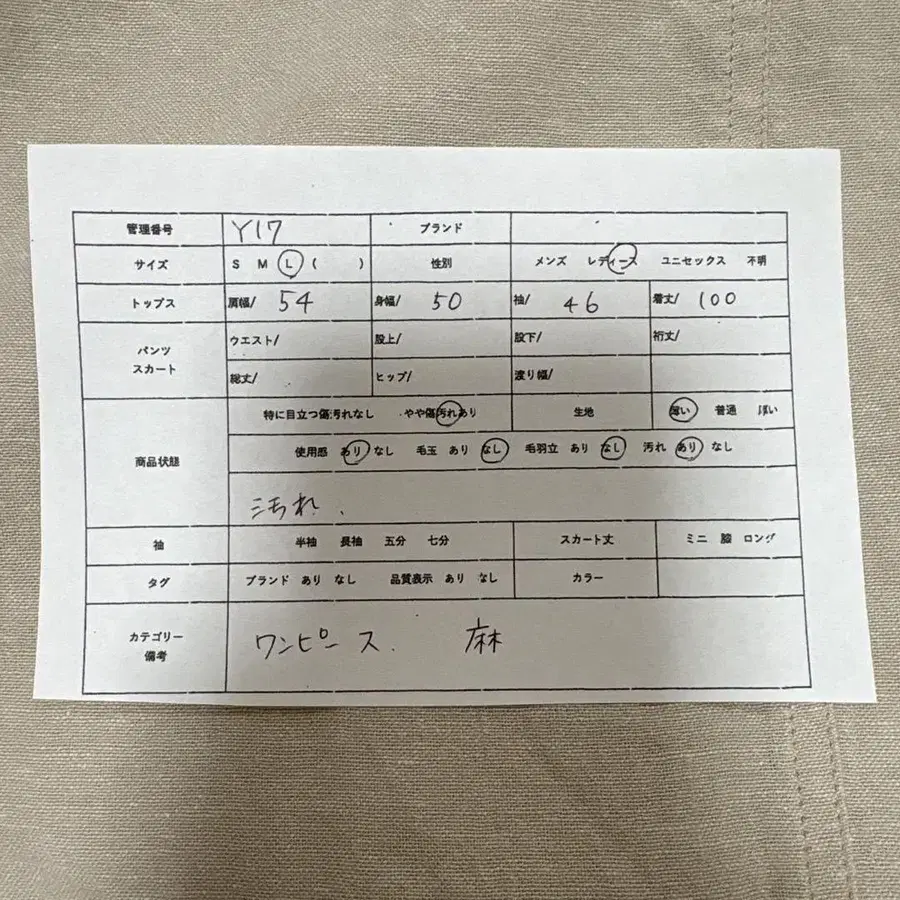 管理番号 Y17 ブランド
サイズ S M L ( ) 性別 メンズ レディース ユニセックス 不明
トップス 肩幅/ 54 身幅/ 50 袖/ 46 着丈/ 100
パンツ スカート ウエスト/ 股上/ 股下/ 裄丈/
総丈/ ヒップ/ 渡り幅/
商品状態 特に目立つ傷汚れなし やや傷汚れあり 生地 薄い 普通 厚い
使用感 あり なし 毛玉 あり なし 毛羽立 あり なし 汚れ あり なし
汚れ、
袖 半袖 長袖 五分 七分 スカート丈 ミニ 膝 ロング
タグ ブランド あり なし 品質表示 あり なし カラー
カテゴリー 備考 ワンピース. 麻